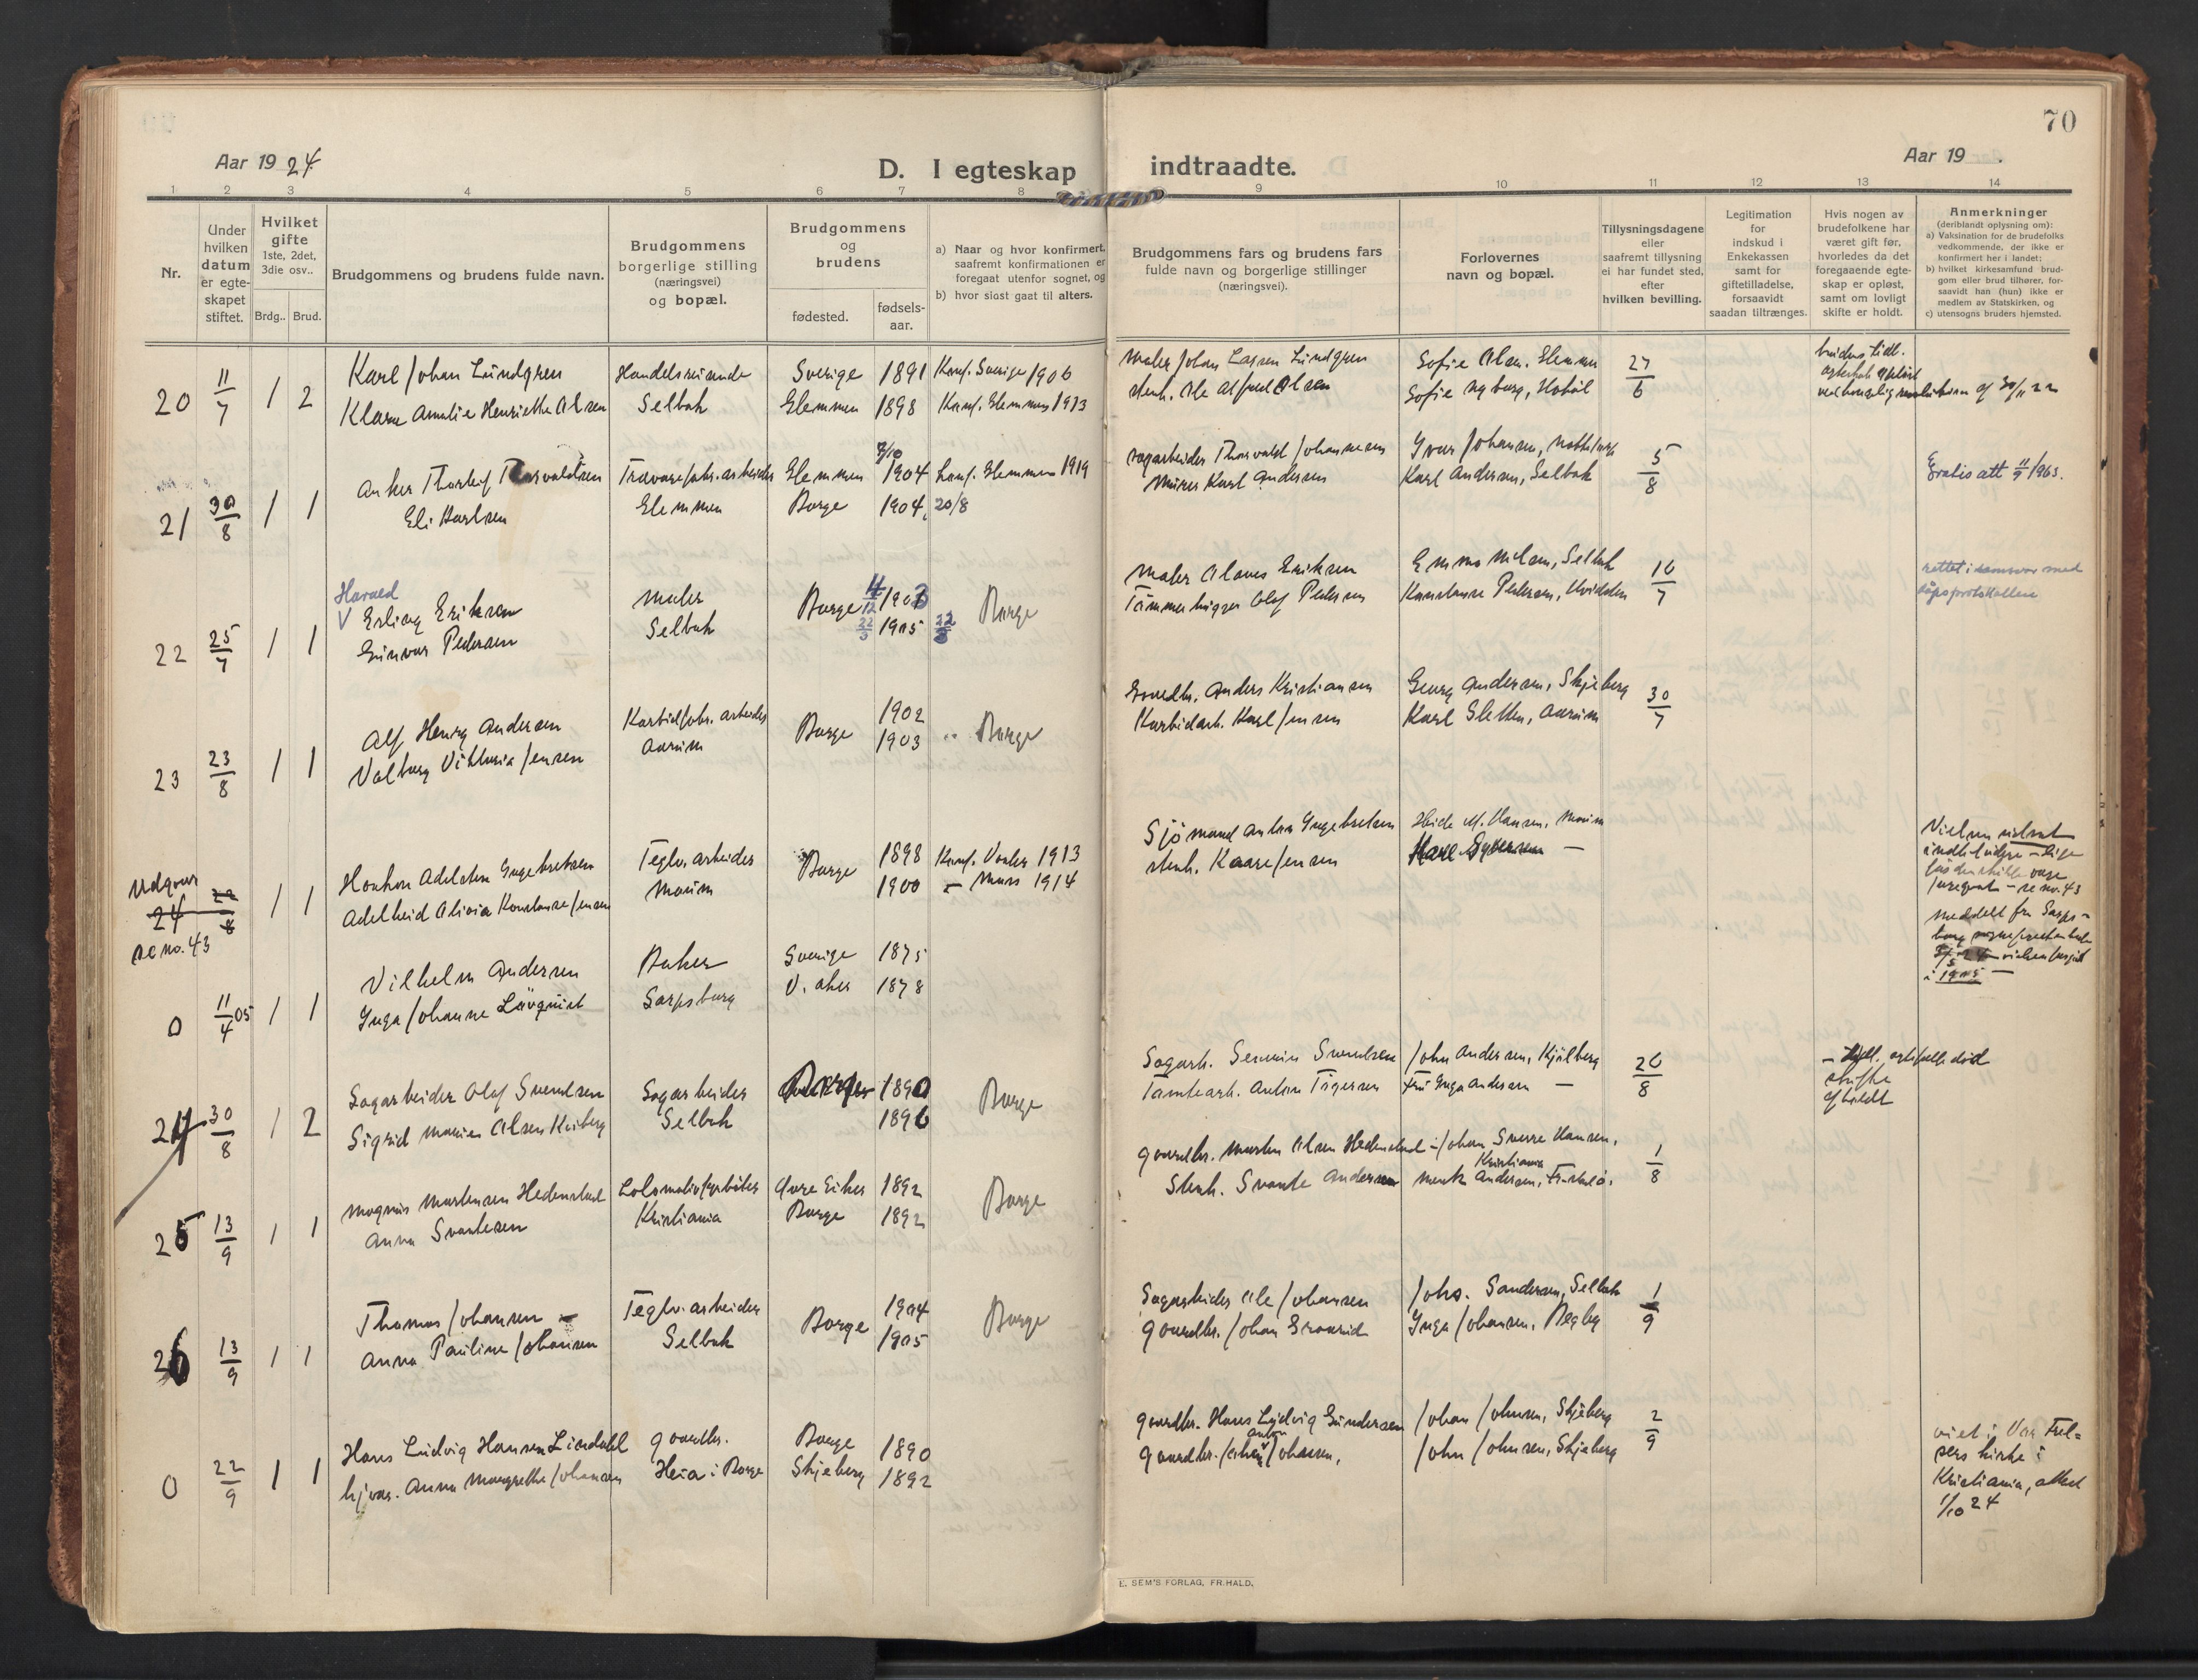 70
Aar 1924
D. I egteskap indtraadte.
Aar 19 .
1 2 3 4 5 6 7 8 9 10 11 12 13 14
Nr.
Under
hvilken
datum
er egte-
skapet
stiftet.
Hvilket
gifte
1ste, 2det,
3die osv..
Brdg.. Brud.
Brudgommens og brudens fulde navn.
Brudgommens
borgerlige stilling
(næringsvei)
og bopæl.
Brudgommens
og
brudens
fødested.
fødsels-
aar.
a) Naar og hvor konfirmert,
saafremt konfirmationen er
foregaat utenfor sognet, og
b) hvor sidst gaat til alters.
Brudgommens fars og brudens fars
fulde navn og borgerlige stillinger
(næringsvei).
Forlovernes
navn og bopæl.
Tillysningsdagene
eller
saafremt tillysning
ei har fundet sted,
efter
hvilken bevilling.
Legitimation
for
indskud i
Enkekassen
samt for
giftetilladelse,
forsaavidt
saadan tiltrænges.
Hvis nogen av
brudefolkene har
været gift før,
hvorledes da det
foregaaende egte-
skap er opløst,
samt om lovligt
skifte er holdt.
Anmerkninger
(deriblandt oplysning om):
a) Vaksination for de brudefolks
vedkommende, der ikke er
konfirmert her i landet;
b) hvilket kirkesamfund brud-
gom eller brud tilhører, for-
saavidt han (hun) ikke er
medlem av Statskirken, og
c) utensogns bruders hjemsted.
20 11/7 1 2 Karl Johan Lundgren Handelsreisende Sverige 1891 Konf. Sverige 1906 Maler Johan Larsen Lundgren Sofie Olsen, Glemmen 27/6
Klara Amalie Henriette Olsen Selbak Glemmen 1898 Konf. Glemmen 1913 Stenh. Ole Alfred Olsen Sofie Nyborg, Hobøl
brudens tidl.
egteskab opløst
ved kongelig resolution af 30/11 22
21 30/8 1 1 Anker Thorleif Thorvaldsen Trævarefabr. arbeider Glemmen 7/10 1904 konf. Glemmen 1919 Sagarbeider Thorvald Johannesen Yvar Johansen 5/8 Gratis att 11/9 1963.
Eli Karlsen Glemmen Borge 1904, 20/8 Murer Karl Andersen Karl Andersen, Selbak
22 25/7 1 1 Harald
V Erling Eriksen Maler Borge 4/12 1903 Borge Maler Olaves Eriksen Emma Nilsen, Selbak 16/7 rettet i samsvar med
Gunvor Pedersen Selbak 22/3 1905 22/3 Tømmerhugger Olaf Pedersen Konstanse Pedersen dåpsprotokollen
23 23/8 1 1 Alf Henry Andersen Karbidfabr. arbeider Borge 1902 " Borge Gaardbr. Anders Kristiansen Georg Andersen, Skjeberg 30/7
Valborg Viktoria Jensen Aarum 1903 Karbidarb. Karl Jensen Karl Sletten, Aarum
Udgaar
24 22/8 1 1 Haakon Adelsten Ingebretsen Teglv. arbeider Borge 1898 Konf. Vaaler 1913 Sjømand Anton Ingebretsen M. Hansen, Moum
se no. 43 Adelheid Alicia Konstanse Jensen Moum 1900 - Moss 1914 Stenh. Kaare Jensen —
Vielsen
se no. 43
0 11/4 05 1 1 Vilhelm Andersen Baker Sverige 1875
Inga Johanne Lövquist Sarpsborg V. aker 1878
meddelt fra Sarps-
borg
i 1905 —
24 30/8 1 2 Sagarbeider Olaf Svendsen Sagarbeider Borge 1890 Borge Sagarb. Severin Svendsen John Andersen, Kjølberg 26/8
Sigrid Marien Olsen Selbak 1896 Tomtearb. Anton Fru Inga Andersen —
død
skifte
afholdt
25 13/9 1 1 Magnus Martinsen Hedenstad Lokomotivfyrbøter Øvre Eiker 1892 Borge Gaardbr. Martin Olsen Hedenstad Johan Sverre Hansen, Kristiania 1/8
Anna Svantesen Kristiania Borge 1892 Stenh. Svante Andersen Andersen,
26 13/9 1 1 Thomas Johansen Teglv. arbeider Borge 1904 Borge Sagarbeider Ole Johansen Johs. Sandersen, Selbak 1/9
Anna Pauline Johansen Selbak 1905 Gaardbr. Johan Inga Johansen, Begby
0 22/9 1 1 Hans Ludvig Hansen Lindahl Gaardbr. Borge 1890 Gaardbr. Hans Ludvig Gundersen Johan Johnsen, Skjeberg 2/9
Anna Margrethe Johansen Heia i Borge Skjeberg 1892 Gaardbr. Johan Anton Johansen, John Johnsen, Skjeberg
viet i Vor Frel-
sers kirke i
Kristiania, attest
1/10 24
E. SEM'S FORLAG, FR.HALD.